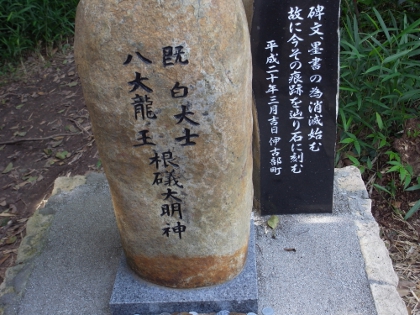 碑文、墨書の為消滅始む
故に今その痕跡を辿り石に刻む
平成二十年三月吉日 伊古部町
既白大士
八大龍王
根礒大明神